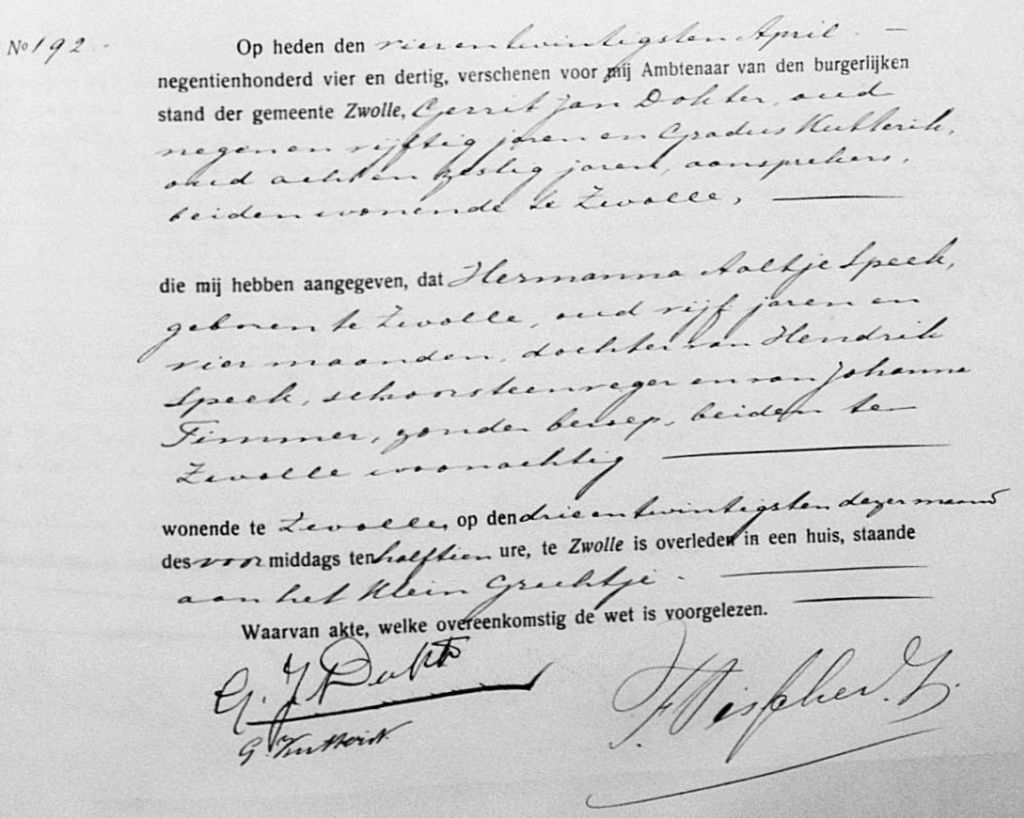 No 192.
Op heden den vier en twintigsten April. —
negentienhonderd vier en dertig, verschenen voor mij Ambtenaar van den burgerlijken
stand der gemeente Zwolle, Gerrit Jan Dokter, oud
negen en vijftig jaren en Gradus Kutterik,
oud acht en zestig jaren, aansprekers,
beiden wonende te Zwolle,
die mij hebben aangegeven, dat Hermanna Aaltje Speek,
geboren te Zwolle, oud vijf jaren en
vier maanden, dochter van Hendrik
Speek, schoorsteenveger en van Johanna
Timmer, zonder beroep, beiden te
Zwolle woonachtig
wonende te Zwolle, op den drie en twintigsten dezer maand
des voormiddags ten half tien ure, te Zwolle is overleden in een huis, staande
aan het Klein Grachtje.
Waarvan akte, welke overeenkomstig de wet is voorgelezen.
G. J. Dokter
G. Kutterik